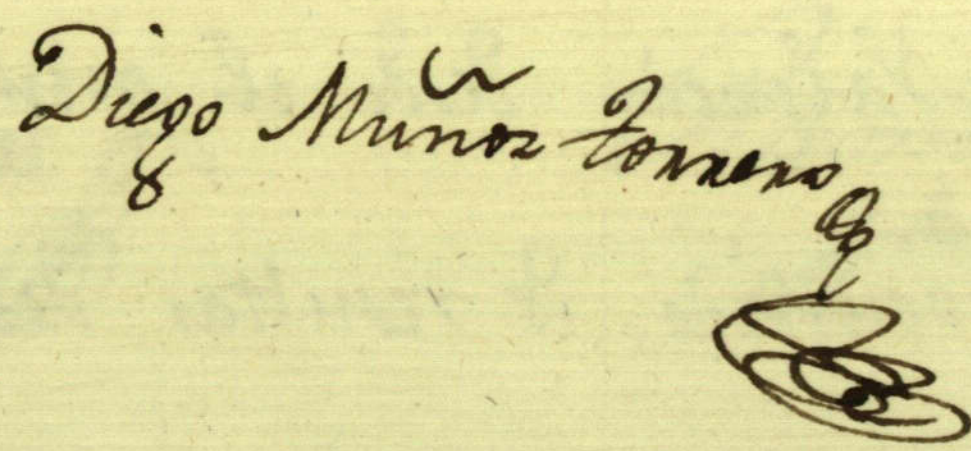 Diego Muñoz Torrero